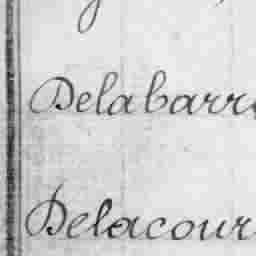 Delabarr
Delacour